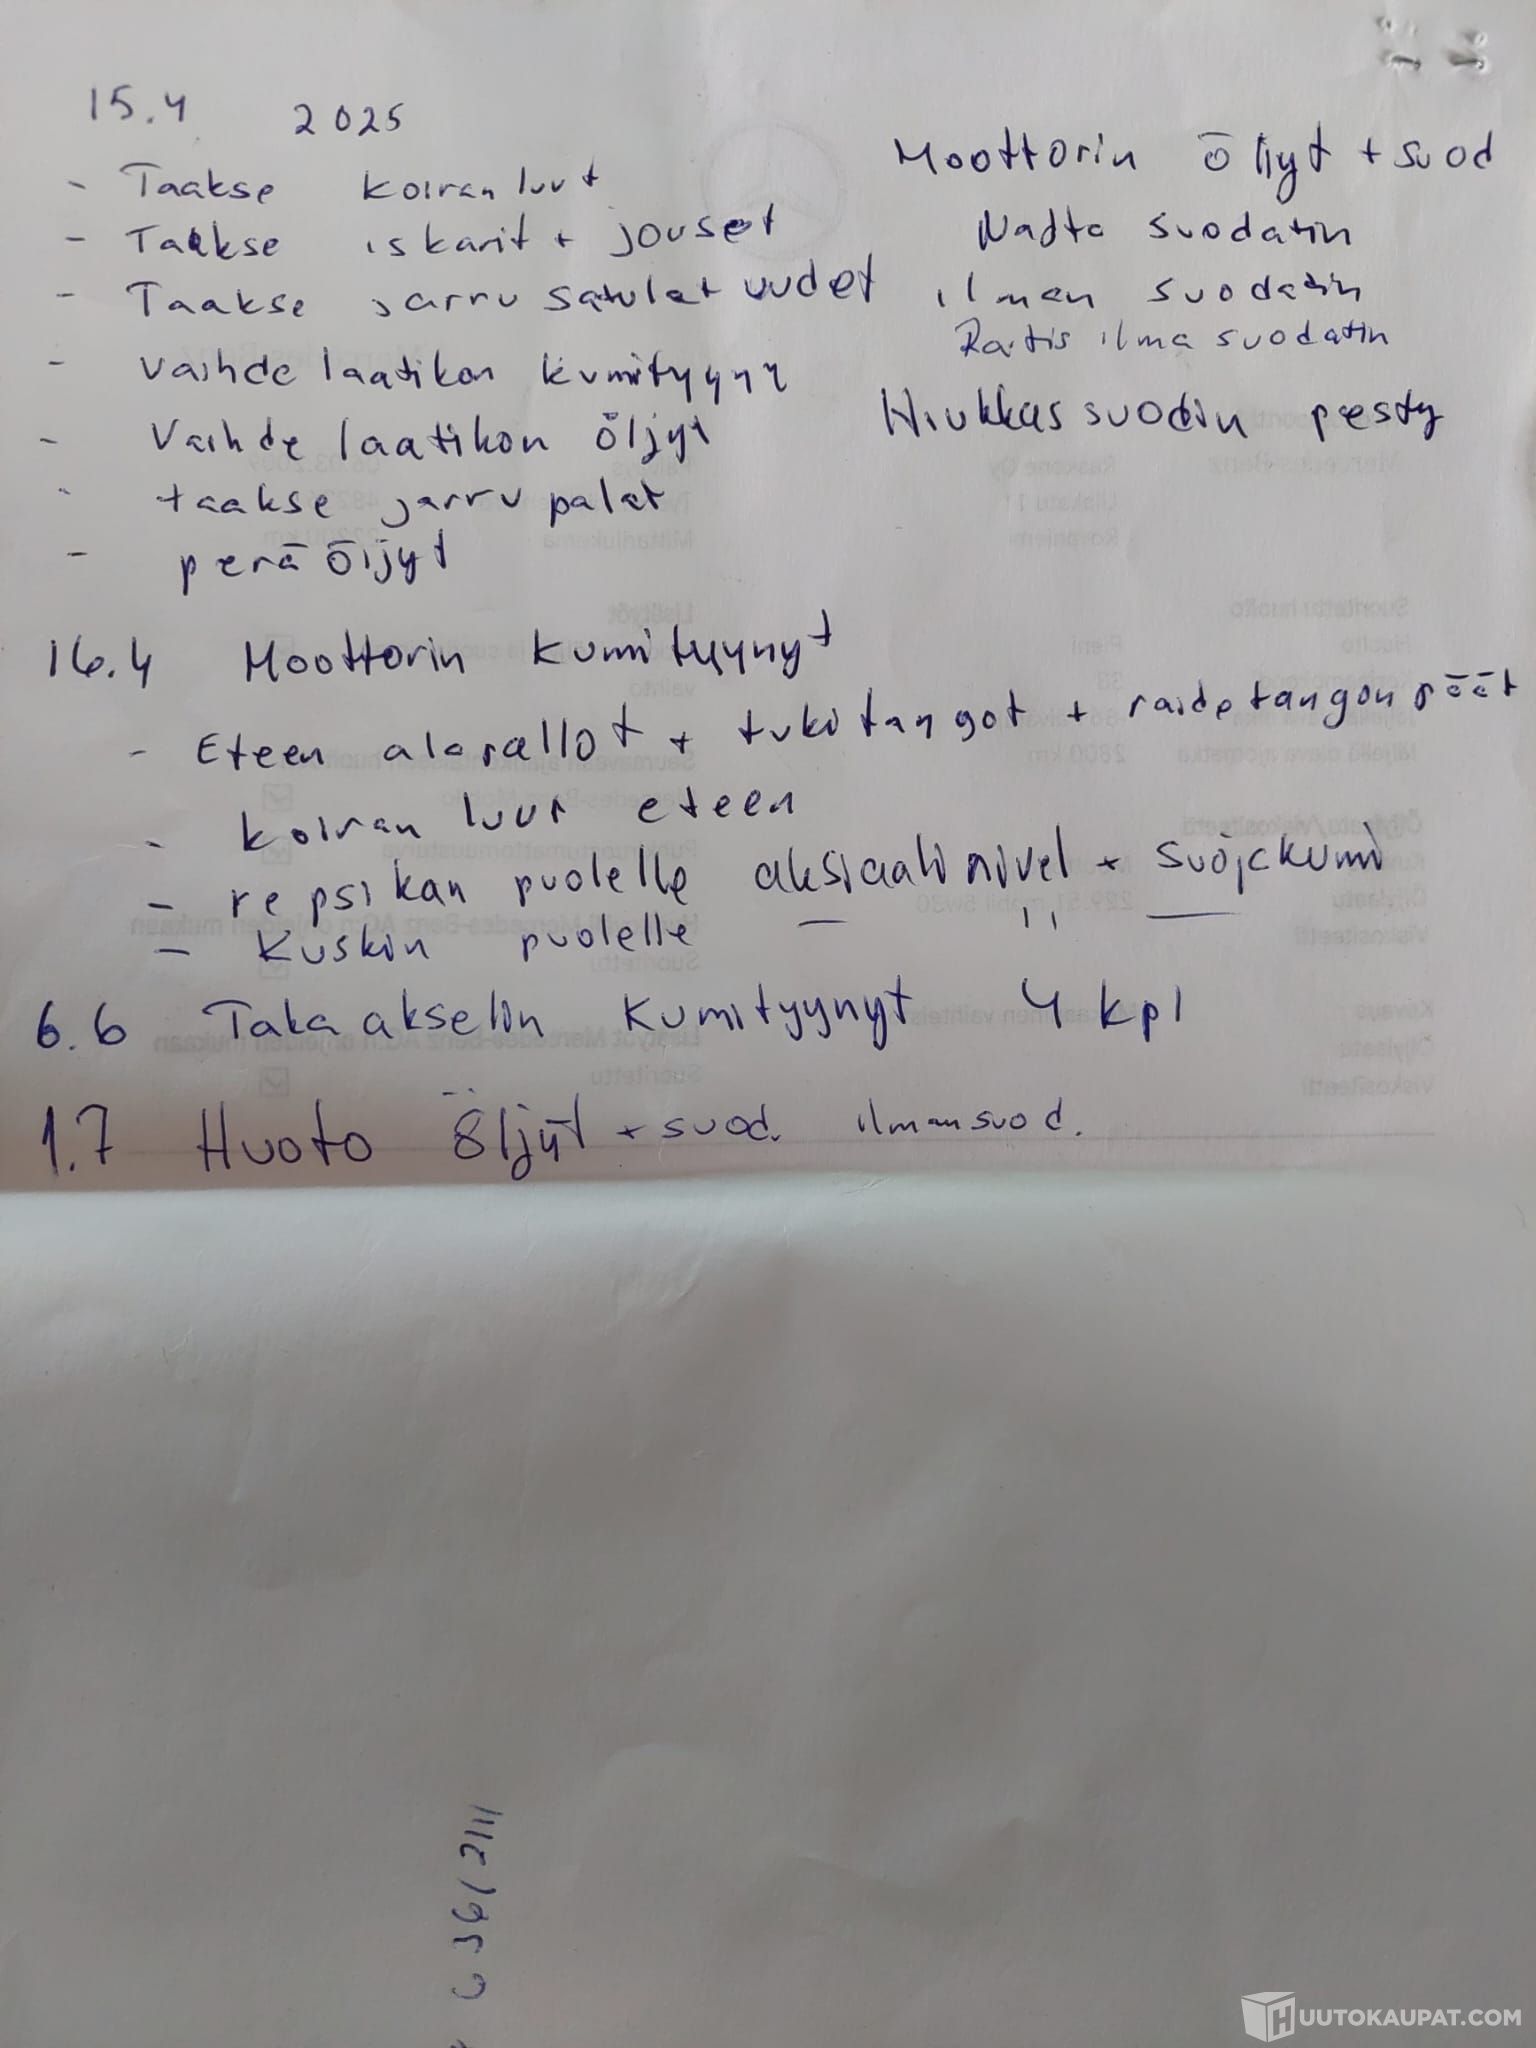 15.4 2025
- Taakse koiranluut
- Taakse iskarit + jouset
- Taakse jarru satulat uudet
- vaihde laatikon kumityyny
- Vaihde laatikon öljyt
- taakse jarru palat
- perä öljyt
Moottorin öljyt + suod
Nafta suodatin
ilman suodatin
Raitis ilma suodatin
Hiukkassuodin pesty
16.4 Moottorin kumityynyt
- Eteen alapallot + tukitangot + raidetangon päät
- koiran luut eteen
- repsikan puolelle aksiaalinivel + suojakumi
- Kuskin puolelle — '' —
6.6 Taka akselin kumityynyt 4 kpl
1.7 Huoto öljyt + suod. ilmansuod.
HUUTOKAUPAT.COM